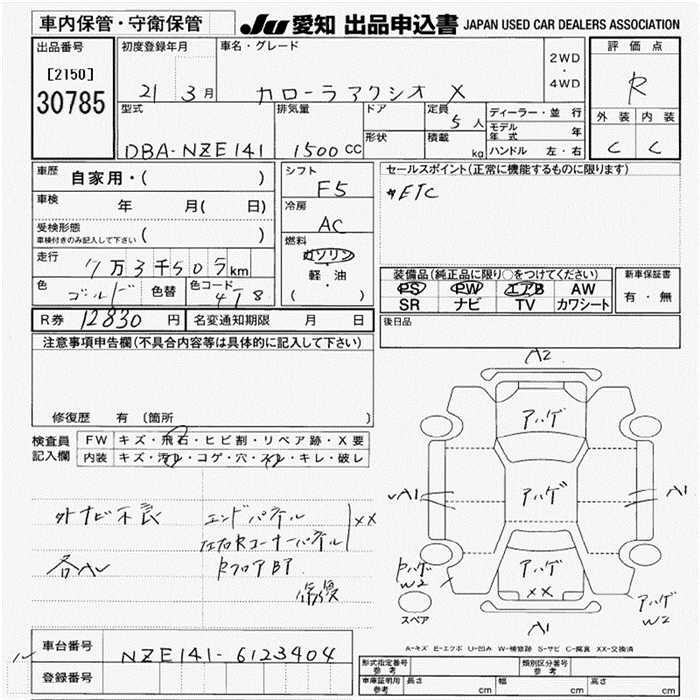 車内保管・守衛保管
JU 愛知 出品申込書 JAPAN USED CAR DEALERS ASSOCIATION
出品番号 初度登録年月 車名・グレード 2WD・4WD 評価点
[2150]
30785 21 3月 カローラアクシオ X R
型式 排気量 ドア 定員 5人 ディーラー・並行 外装 内装
形状 積載 kg モデル年式 年
DBA-NZE141 1500cc ハンドル 左・右 C C
車歴 自家用・( )
シフト F5
セールスポイント(正常に機能するものに限ります)
*ETC
車検 年 月( 日)
冷房 AC
受検形態
車検付きのみ記入して下さい ( )
走行 7万3千50ラkm
燃料 ガソリン
軽・油
( )
色 ゴールド 色替 色コード 4T8
装備品(純正品に限り○をつけてください) 新車保証書
PS PW エアB AW 有・無
SR ナビ TV カワシート
R券 12830円 名変通知期限 月 日
後日品
注意事項申告欄(不具合内容等は具体的に記入して下さい)
修復歴 有(箇所 )
検査員記入欄 FW キズ・飛石・ヒビ割・リペア跡・X要
内装 キズ・汚れ・コゲ・穴・スレ・キレ・破レ
A2
アハゲ
A1 アハゲ A1
外ナビ不良 エンドパネル XX
左右Rコーナーパネル
各A Rフロア部
修復
アハゲ
XX
アハゲ
W2
A1
W2
スペア
A-キズ E-エクボ U-凹み W-補修跡 S-サビ C-腐食 XX-交換済
車台番号 NZE141-6123404
登録番号
形式指定番号 参考 類別区分番号 参考
車庫証明用 参考 長さ cm 幅 cm 高さ cm